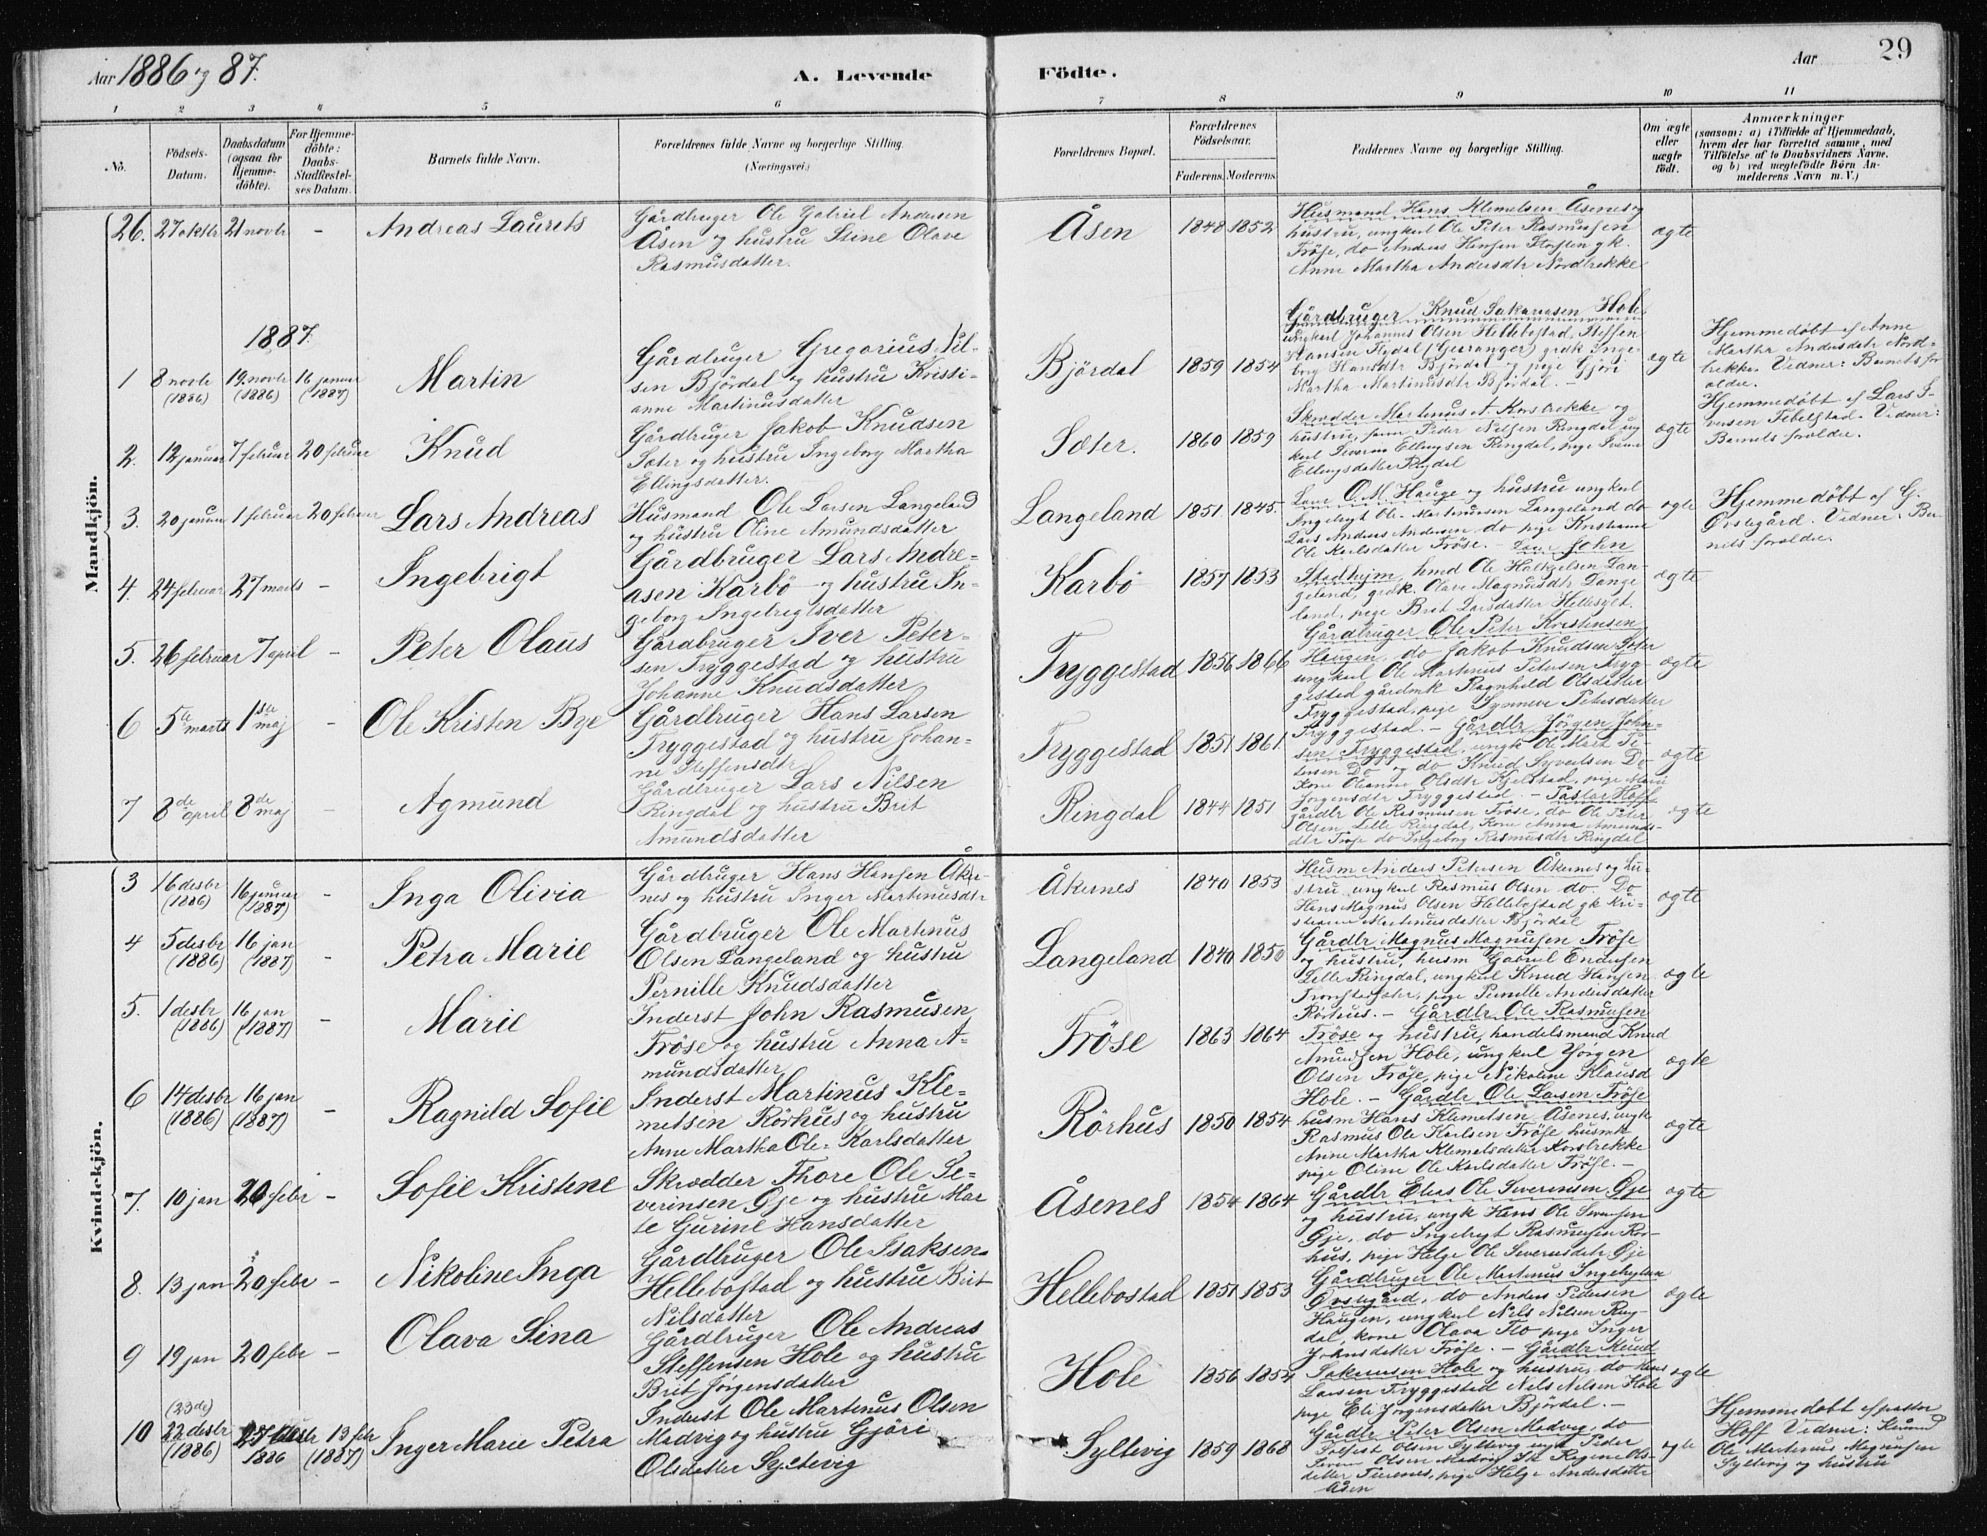 Aar 1886 og 87.
A. Levende Födte.
Aar 29
1 2 3 4 5 6 7 8 9 10 11
No.
Födsels-Datum.
Daabsdatum (ogsaa for Hjemme-döbte).
For Hjemme-döbte: Daabs-Stadfæstel-ses Datum.
Barnets fulde Navn.
Forældrenes fulde Navne og borgerlige Stilling.
(Næringsvei.)
Forældrenes Bopæl.
Forældrenes Födselsaar.
Faderens. Moderens.
Faddernes Navne og borgerlige Stilling.
Om ægte eller uægte födt.
Anmærkninger
(saasom: a) i Tilfælde af Hjemmedaab, hvem der har forrettet samme, med Tilföielse af to Daabsvidners Navne, og b) ved uægtefödte Börn An-melderens Navn m. V.)
Mandkjön.
26. 27 oktbr 21 novbr - Andreas Laurits
Gårdbruger Ole Gabriel Andersen
Åsen og hustru Stine Olave
Rasmusdatter.
Åsen 1848 1852
Husmand Hans Klemetsen Åsenes og
hustru, ungkarl Ole Peter Rasmussen
Fröse, do Andreas Hansen gk.
Anne Martha Andersdtr Nordbrekke
ægte
1887.
1 8 novbr (1886) 19 novbr (1886) 16 januar (1887) Martin
Gårdbruger Gregorius Nil-
sen Björdal og hustru Kristi-
anne Martinusdatter
Björdal 1859 1854
Gårdbruger Knud Sakariasen Hole
ungkarl Johannes Olsen Hellebostad, Steffen
Hansen Flydal (Geiranger) grdk Inge-
borg Hansdtr Björdal og pige Gjöri
Martha Martinusdtr Björdal. -
ægte
Hjemmedöbt af Anne
Martha Andersdtr Nord-
brekke. Vidner: Barnets for
ældre.
2. 12 januar 7 februar 20 februar Knud
Gårdbruger Jakob Knudsen
Sæter og hustru Ingeborg Martha
Ellingsdatter.
Sæter. 1860 1859
Skrædder Martinus A. Korsbrekke og
hustru, Peder Nilsen Ringdal, ung
karl Severin Ellingsen Ringdal, pige
Ellingsdatter Ringdal
ægte
Hjemmedöbt af Lars I-
versen Vidner:
Barnets forældre.
3. 20 januar 1 februar 20 februar Lars Andreas
Husmand Ole Larsen Langeland
og hustru Oline Amundsdatter
Langeland 1851 1845.
O. M. Hauge og hustru ungkarl
Ole Martinusen Langeland do
Lars Andreas Andersen do pige Kristianne
Ole Karlsdatter Fröse. - John
ægte
Hjemmedöbt af G.
Övstegård. Vidner: Bar-
nets forældre.
4. 24 februar 27 marts - Ingebrigt
Gårdbruger Lars Andre-
asen Karbö og hustru In-
geborg Ingebrigtsdatter
Karbö 1857 1853
Stadheim, Ole Lan-
geland, grdk. Olave Magnusdtr Lange
land, pige Brit Larsdatter Hellesylt.
ægte
5. 26 februar 7 april - Peter Olaus
Gårdbruger Iver Peter-
sen Tryggestad og hustru
Johanne Knudsdatter
Tryggestad 1856 1866
Gårdbruger Ole Peter Kristensen
Haugen, do Jakob Knudsen Sæter
ungkarl Ole Martinus Petersen Tryg-
gestad gårdmk Ragnhild Olsdatter
Tryggestad, pige Synneve Petersdatter
Tryggestad. -
ægte
6 5te marts 1ste maj - Ole Kristen Bye
Gårdbruger Hans Larsen
Tryggestad og hustru Johan-
ne Steffensdtr
Tryggestad 1851 1861.
Gårdbr Jörgen John-
sen Tryggestad, ungk Ole Mart Pe-
dersen Do og do Knud Syvertsen Do
Kone Oleanne Olsdtr Kjelstad, pige
Jörgensdtr Tryggestad. -
ægte
7 8de april 8de maj - Agmund
Gårdbruger Lars Nilsen
Ringdal og hustru Brit
Amundsdatter
Ringdal 1844 1851
Pastor Hoff
gårdbr Ole Rasmusen Fröse, do Ole Peter
Olsen Lille Ringdal, Kone Anna Amunds-
dtr Fröse do Ingeborg Rasmusdtr Ringdal
ægte
Kvindekjön.
3 16 desbr (1886) 16 januar (1887) - Inga Olivia
Gårdbruger Hans Hansen Åker-
nes og hustru Inger Martinusdtr
Åkernes 1840 1853
Husm Anders Petersen Åkernes og hu-
stru, ungkarl Rasmus Olsen do. Do
Hans Magnus Olsen Hellebostad gk Kri-
stianne Martinusdatter Björdal
ægte
4 5 desbr (1886) 16 jan (1887) - Petra Marie
Gårdbruger Ole Martinus
Olsen Langeland og hustru
Pernille Knudsdatter
Langeland 1840 1850
Gårdbr Magnus Magnusen Fröse
og hustru, husm Gabriel Enausen
Lille Ringdal, ungkarl Knud Hansen
pige Pernille Andersdatter
Rörhus. -
ægte
5. 1 desbr (1886) 16 jan (1887) - Marie
Inderst John Rasmusen
Fröse og hustru Anna A-
mundsdatter
Fröse 1863 1864
Gårdbr Ole Rasmusen
Fröse og hustru, handelsmand Knud
Amundsen Hole, ungkarl Jörgen
Olsen Fröse, pige Nikoline Klausd
Hole. -
ægte
6 14 desbr (1886) 16 jan (1887) - Ragnild Sofie
Inderst Martinus Kle-
metsen Rörhus og hustru
Anne Martha Ole-Karlsdatter
Rörhus 1850 1854
Gårdbr Ole Larsen Fröse
husm Hans Klemetsen Åsenes, ungk
Rasmus Ole Karlsen Fröse husmk
Anne Martha Klemetsdatter Korsbrekke
pige Oline Ole Karlsdatter Fröse. -
ægte
7. 10 jan 20 febr - Sofie Kristine
Skrædder Thore Ole Se-
verinsen Gje og hustru Mar
te Gurine Hansdatter
Åsenes 1854 1864
Gårdbr Elias Ole Severinsen Gje
og hustru, ungk Hans Ole Severinsen
Gje, do Ingebrigt Rasmusen Rör-
hus, pige Helge Ole Severinsdtr Gje
ægte
8. 13 jan 20 febr - Nikoline Inga
Gårdbruger Ole Isaksen
Hellebostad og hustru Brit
Nilsdatter
Hellebostad 1851 1853
Gårdbruger Ole Martinus Ingebrigtsen
Övstegård, do Anders Pedersen
Haugen, ungkarl Nils Nilsen Ring-
dal, kone Olava Flo pige Inger
Johnsdatter Fröse. -
ægte
9 19 jan 20 febr - Olava Sina
Gårdbruger Ole Andreas
Steffensen Hole og hustru
Brit Jörgensdatter
Hole 1856 1854
Gårdbr Knud
Sakariasen Hole og hustru, do Hans
Larsen Tryggestad Nils Nilsen Hole
pige Eli Jörgensdatter Björdal. -
ægte
10 (23de) 22 desbr (1886) 27 desbr 1886 13 febr (1887) Inger Marie Petra
Inderst Ole Martinus Olsen
Madvig og hustru Gjöri
Olsdatter Syltevig
Syltevig 1859 1868
Gårdbr Peter Olsen Medvig, do
Olsen Syltevig ungk Peder
Severin Olsen Madvig Regine Ols-
datter pige Helge Andersdatter
Åsen
ægte
Hjemmedöbt af pastor
Hoff Vidner:
Ole Martinus Magnusen
Syltevig og hustru